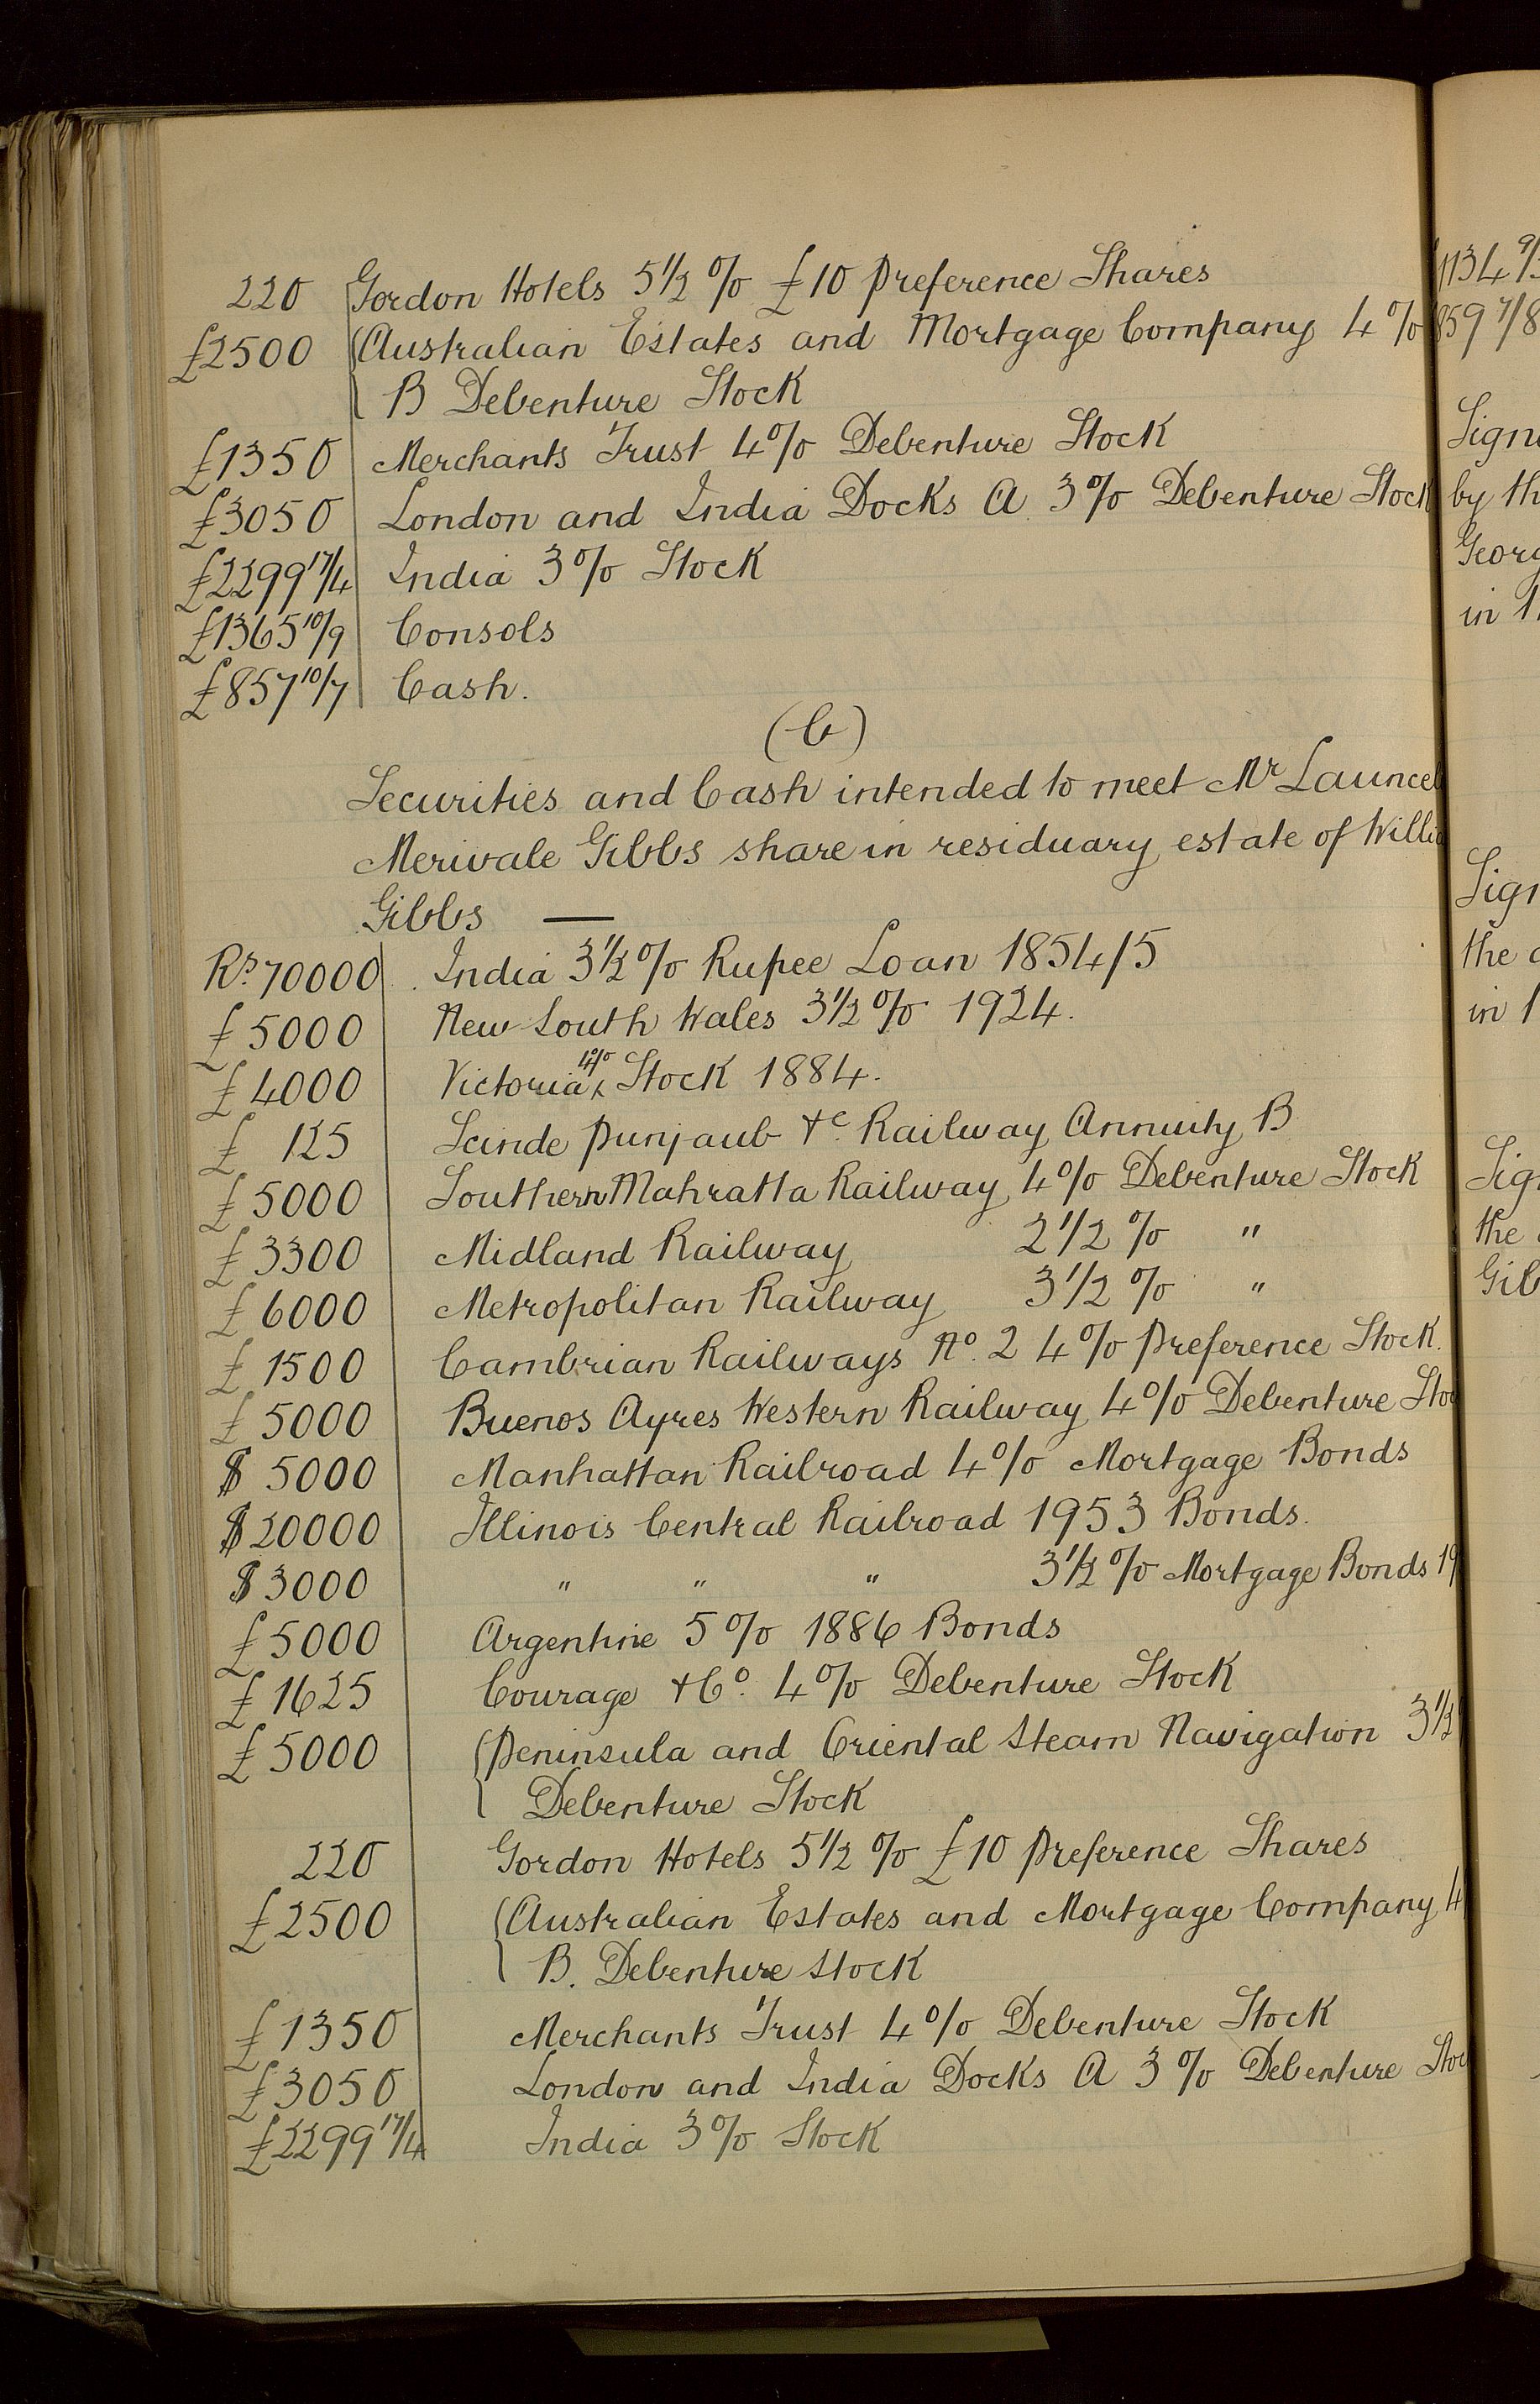 220 Gordon Hotels 5½% £10 Preference Shares
£2500 Australian Estates and Mortgage Company 4%
B Debenture Stock
£1350 Merchants Trust 4% Debenture Stock
£3050 London and India Docks A 3% Debenture Stock
£2299 17/4 India 3% Stock
£1365 10/9 Consols
£857 10/7 Cash.
(C)
Securities and Cash intended to meet Mr Launcel
Merivale Gibbs share in residuary estate of Willia
Gibbs —
Rs. 70000 India 3½% Rupee Loan 1854/5
£5000 New South Wales 3½% 1924.
£4000 Victoria 4% Stock 1884.
£125 Scinde Punjaub &c. Railway Annuity B
£5000 Southern Mahratta Railway 4% Debenture Stock
£3300 Midland Railway 2½% "
£6000 Metropolitan Railway 3½% "
£1500 Cambrian Railways No. 2 4% Preference Stock.
£5000 Buenos Ayres Western Railway 4% Debenture Stoc
$5000 Manhattan Railroad 4% Mortgage Bonds
$20000 Illinois Central Railroad 1953 Bonds.
$3000 " " " 3½% Mortgage Bonds 19
£5000 Argentine 5% 1886 Bonds
£1625 Courage & Co. 4% Debenture Stock
£5000 Peninsula and Oriental Steam Navigation 3½
Debenture Stock
220 Gordon Hotels 5½% £10 Preference Shares
£2500 Australian Estates and Mortgage Company 4
B. Debenture Stock
£1350 Merchants Trust 4% Debenture Stock
£3050 London and India Docks A 3% Debenture Stoc
£2299 17/4 India 3% Stock
859 7/8
Signe
by th
Georg
in 1
Sign
the
in 1
Sig
the
Gib